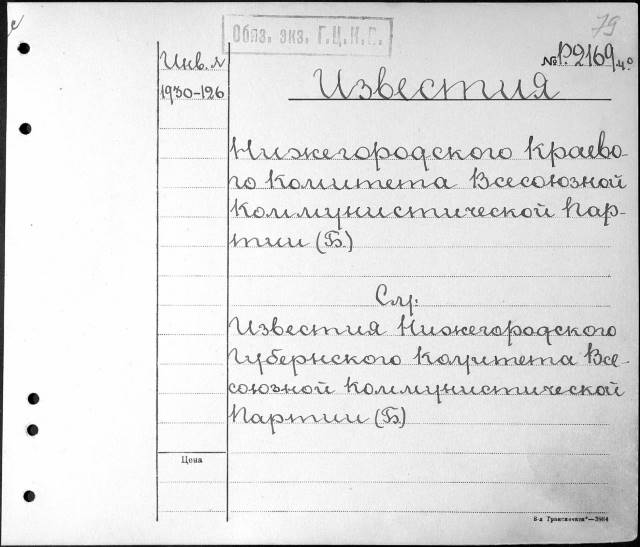 79
Обяз. экз. Г.Ц.К.П.
Инв. №
№ Р.2169 4°
1930-126
Известия
Нижегородского Краево-
го Комитета Всесоюзной
Коммунистической Пар-
тии (Б.)
См:
Известия Нижегородского
Губернского Комитета Все-
союзной Коммунистической
Партии (Б.)
Цена